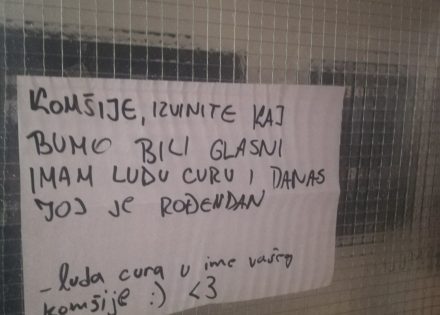 KOMŠIJE, IZVINITE KAJ
BUMO BILI GLASNI
IMAM LUDU CURU I DANAS
JOJ JE ROĐENDAN
- luda cura u ime vašeg
komšije :) <3